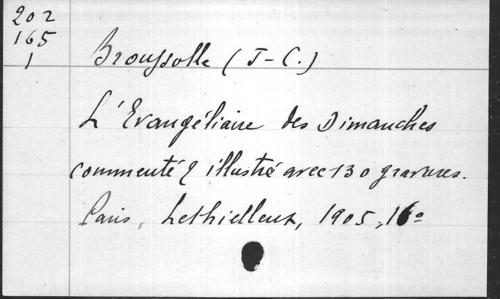 202
165
1
Broussolle (J-C.)
L'Evangéliaire des Dimanches
commenté & illustré avec 130 gravures.
Paris, Lethielleux, 1905, 16º